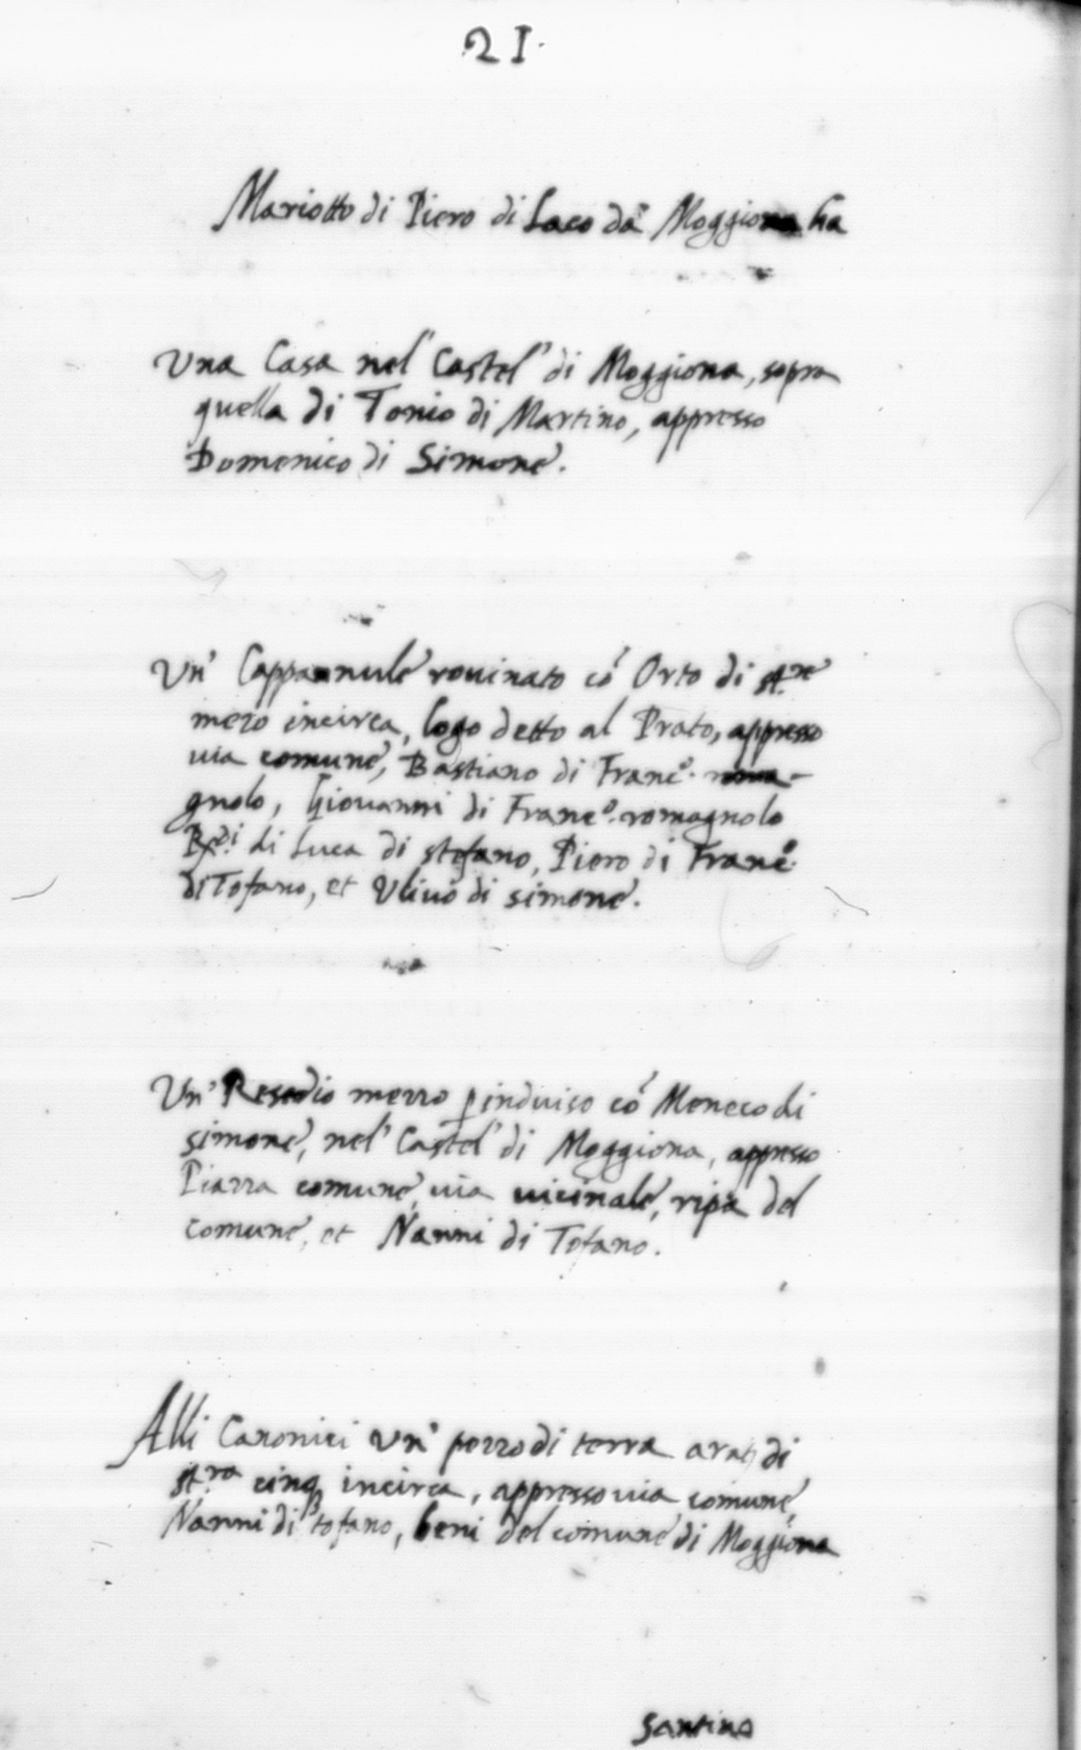 21.
Mariotto di Piero di Laco da Moggiona ha
Una Casa nel Castel di Moggiona, sopra
quella di Tonio di Martino, appresso
Domenico di Simone.
Un' Cappannule rouinato cõ Orto di st.ne
mezo incirca, logo detto al Prato, appresso
uia comune, Bastiano di Franc.o roma-
gnolo, Giouanni di Franc.o romagnolo
Rx.di di Luca di stefano, Piero di Franc.o
di Tofano, et Uliuo di simone.
Un' Resedio mezzo p induiso cõ Meneco di
simone, nel Castel di Moggiona, appresso
Piazza comune, uia uicinale, ripa del
comune, et Nanni di Tofano.
Alli Canonici un' pezzo di terra arat. di
st.ra cinq incirca, appresso uia comune,
Nanni di tofano, beni del comune di Moggiona
Santino